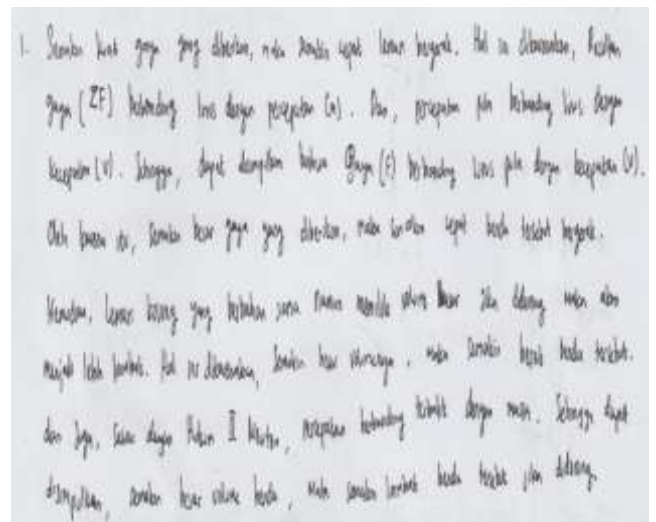 1. Semakin kuat gaya yang diberikan, maka semakin cepat lemari bergerak. Hal ini dikarenakan, Resultan
gaya (ΣF) berbanding lurus dengan percepatan (a). Dan, percepatan pula berbanding lurus dengan
kecepatan (v). Sehingga, dapat disimpulkan bahwa Gaya (F) berbanding lurus pula dengan kecepatan (v).
Oleh karena itu, semakin besar gaya yang diberikan, maka semakin cepat benda tersebut bergerak.
Kemudian, lemari kosong yang berbahan sama namun memiliki volume besar jika didorong maka akan
menjadi lebih lambat. Hal ini dikarenakan, semakin besar volumenya, maka semakin berat benda tersebut.
dan juga, sesuai dengan Hukum II Newton, percepatan berbanding terbalik dengan massa. Sehingga dapat
disimpulkan, semakin besar volume benda, maka semakin lambat benda tersebut jika didorong.